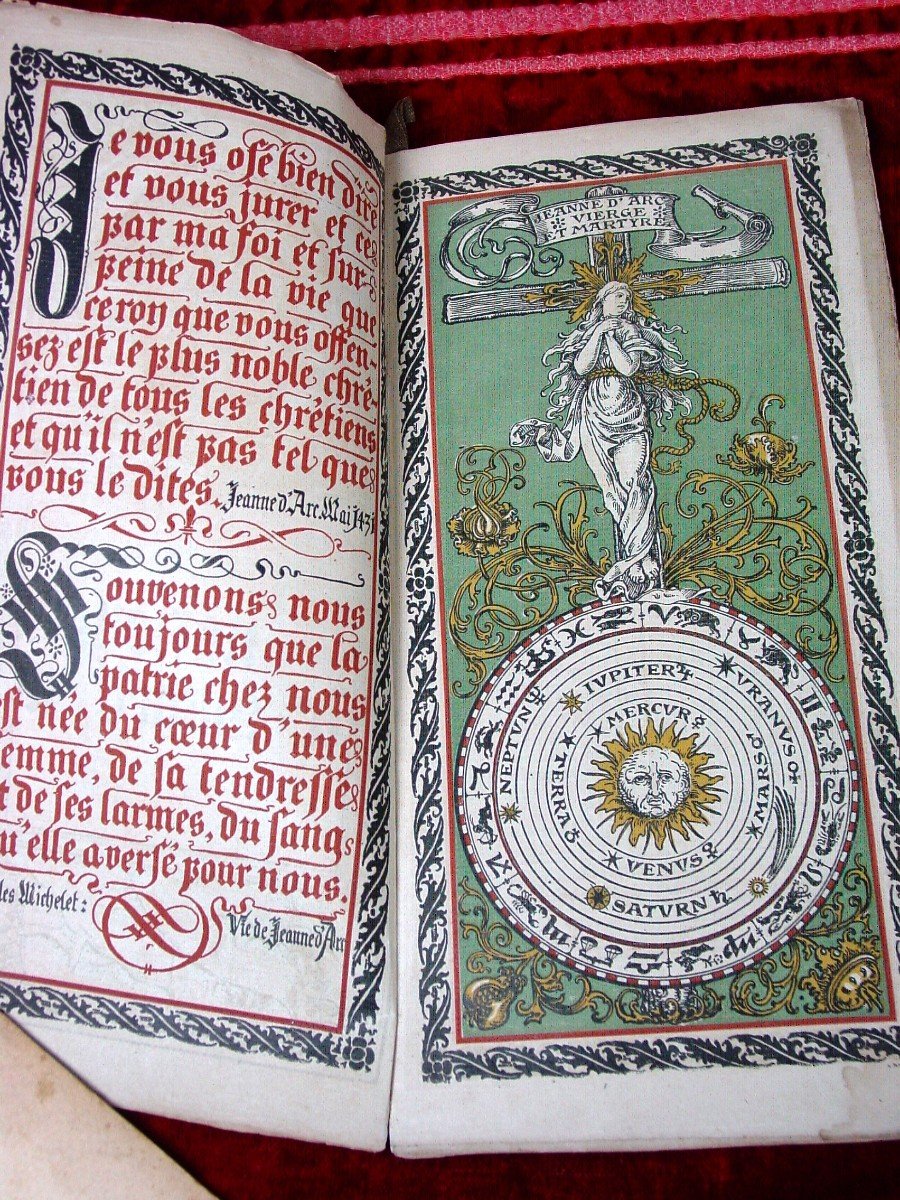 Je vous ose bien dire
et vous jurer et ce
par ma foi et sur
peine de la vie que
ce roy que vous offen-
sez est le plus noble chré-
tien de tous les chrétiens
et qu'il n'est pas tel que
vous le dites.
Jeanne d'Arc. Mai 1431
Souvenons nous
toujours que la
patrie chez nous
est née du cœur d'une
femme, de sa tendresse
et de ses larmes, du sang
qu'elle a versé pour nous.
Michelet:
Vie de Jeanne d'Arc
JEANNE D'ARC
VIERGE
ET MARTYRE
IVPITER ♃
VRANVS
MERCVR ☿
NEPTVN
TERRA
MARS ♂
VENVS ♀
SATVRN ♄